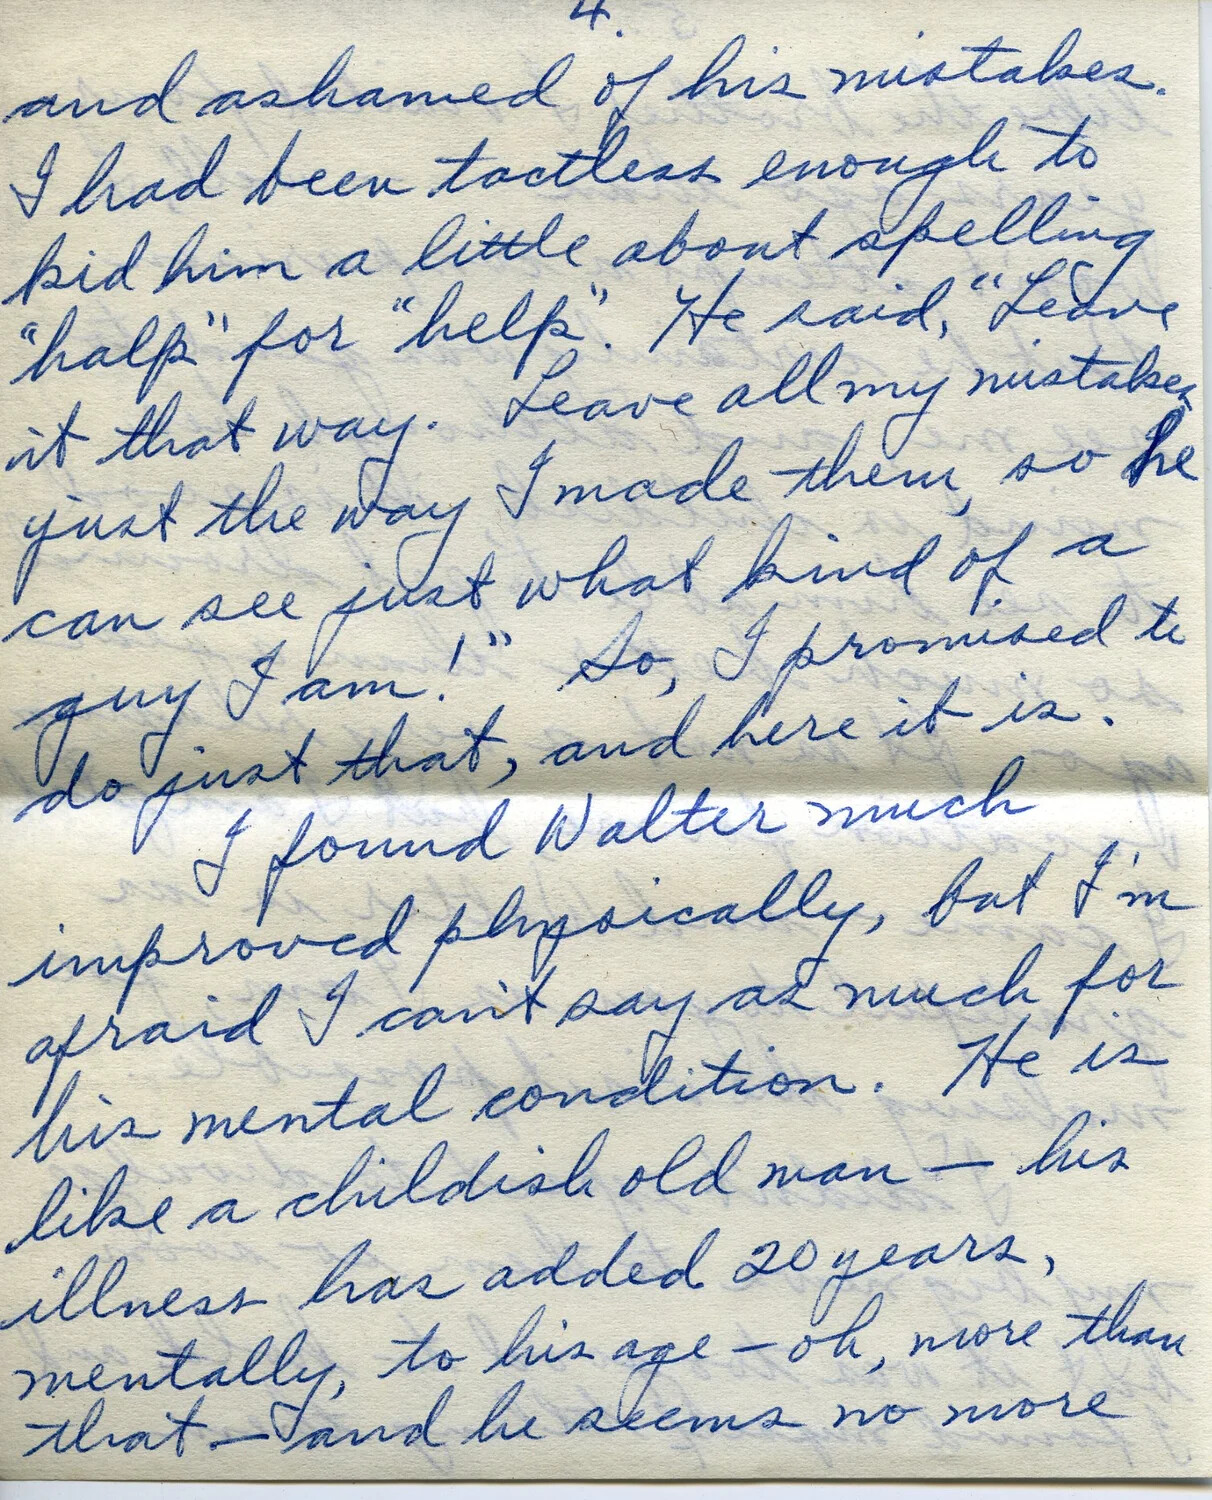 4.
and ashamed of his mistakes.
I had been tactless enough to
kid him a little about spelling
"halp" for "help". He said, "Leave
it that way. Leave all my mistakes
just the way I made them, so he
can see just what kind of a
guy I am!" So, I promised to
do just that, and here it is.
I found Walter much
improved physically, but I'm
afraid I can't say as much for
his mental condition. He is
like a childish old man — his
illness has added 20 years,
mentally, to his age — oh, more than
that — and he seems no more